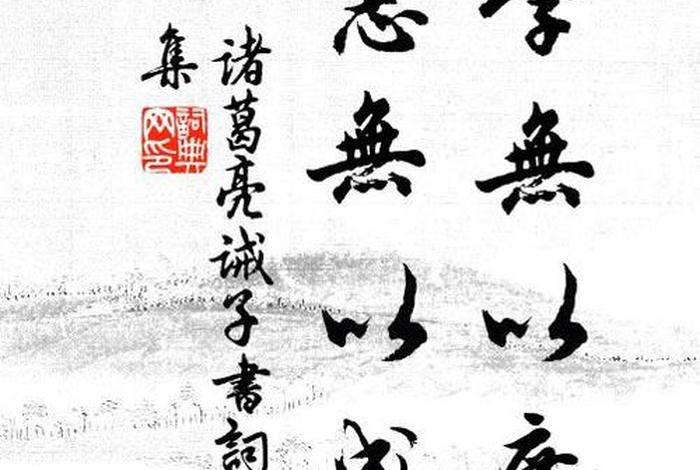 學無以廣
志無以成
諸葛亮誡子書詞
集
詞典網印